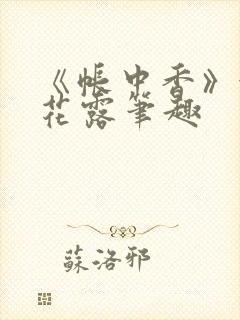 《帐中香》
花露笔趣
蘇洛邪